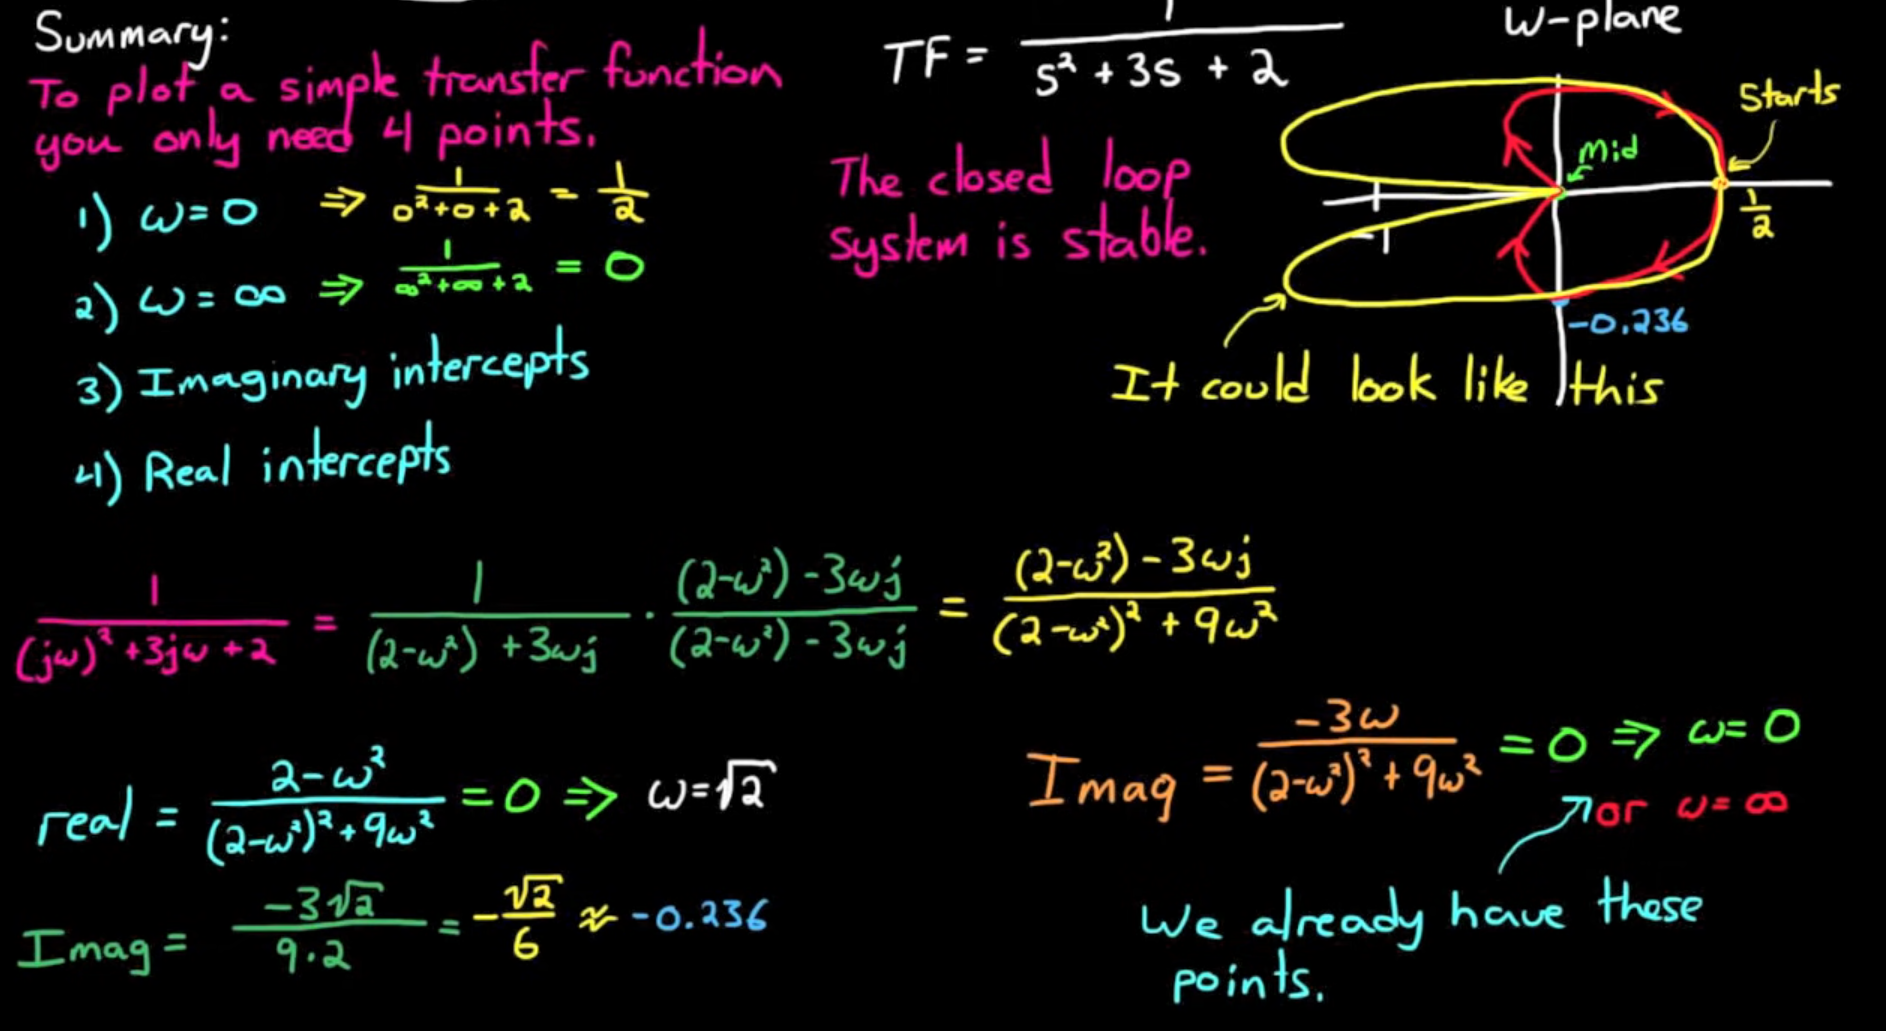 Summary:
To plot a simple transfer function
you only need 4 points.
1) ω=0 ⇒ 1/(0²+0+2) = 1/2
2) ω=∞ ⇒ 1/(∞²+∞+2) = 0
3) Imaginary intercepts
4) Real intercepts
TF = 1/(s²+3s+2)
The closed loop
system is stable.
W-plane
Starts
Mid
1/2
-1
-0.236
It could look like this
1/((jω)²+3jω+2) = 1/((2-ω²)+3ωj) · ((2-ω²)-3ωj)/((2-ω²)-3ωj) = ((2-ω²)-3ωj)/((2-ω²)²+9ω²)
real = (2-ω²)/((2-ω²)²+9ω²) = 0 ⇒ ω=√2
Imag = -3√2/(9·2) = -√2/6 ≈ -0.236
Imag = -3ω/((2-ω²)²+9ω²) = 0 ⇒ ω=0
or ω=∞
We already have these
points.